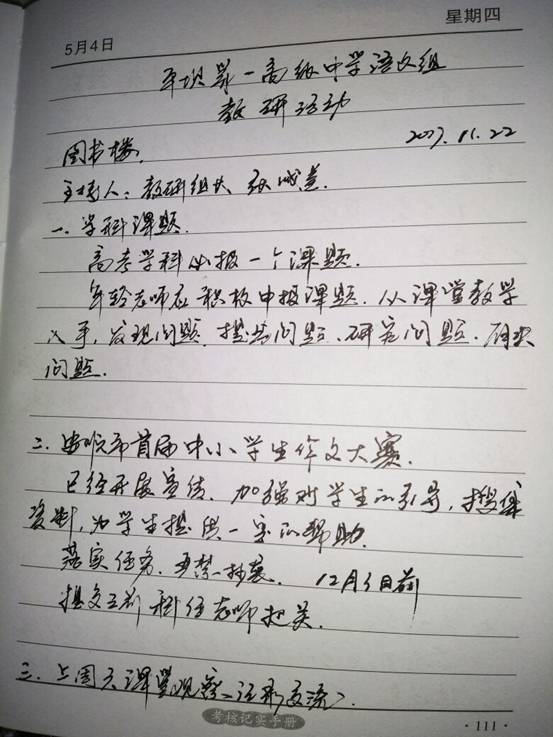 星期四
5月4日
平坝第一高级中学语文组
教研活动
2007.11.22
图书楼.
主持人：教研组长
一.学科课题.
高考学科必报一个课题.
年轻老师应积极申报课题.从课堂教学
入手,发现问题.提出问题、研究问题、解决
问题.
二.安顺市首届中小学生作文大赛.
已经开展宣传.加强对学生的引导,搜集
资料,为学生提供一定的帮助.
落实任务.严禁抄袭. 12月5日前
提交 科任老师把关.
三.上周六课堂观察.
考核记实手册
·111·